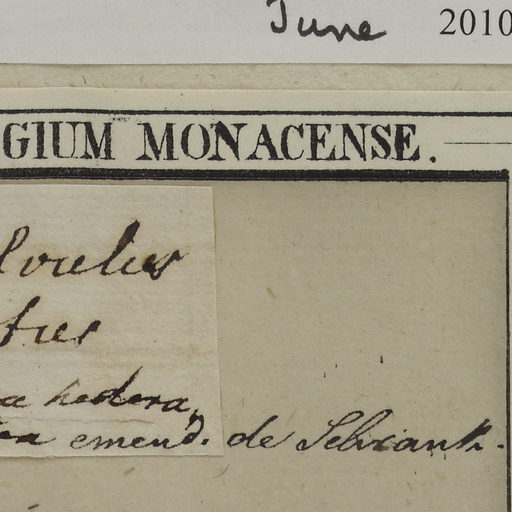 June 2010
GIUM MONACENSE.
lvulus
tus
ea hedera,
tea emend. de Schrank.